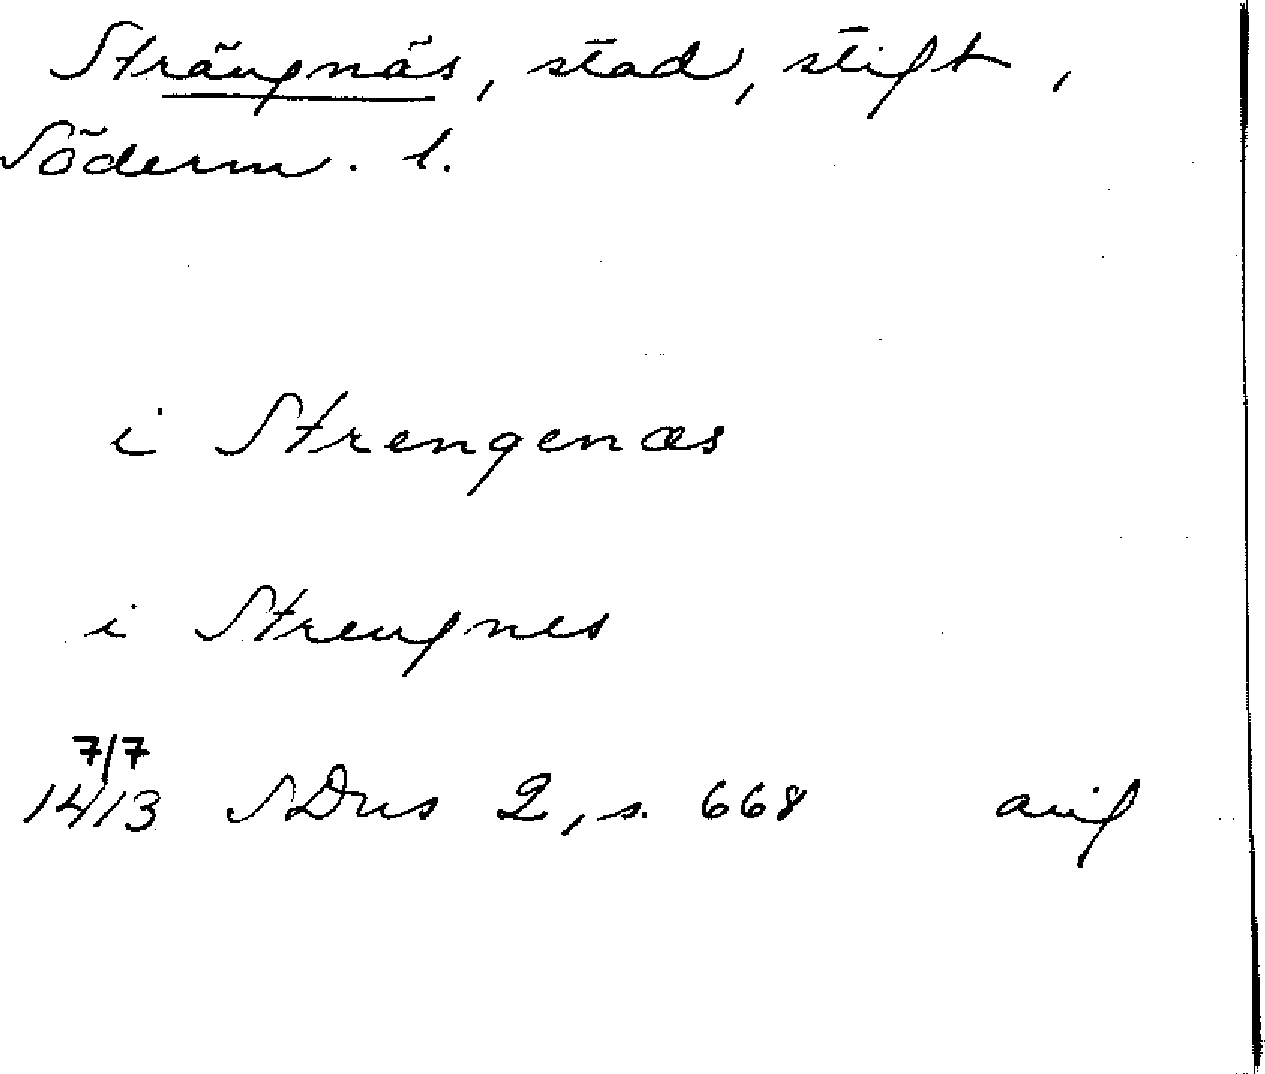 Strängnäs, stad, stift,
Söderm. l.
i Strengenæs
i Strengnes
7/7
1413 SDns 2, s. 668 avig